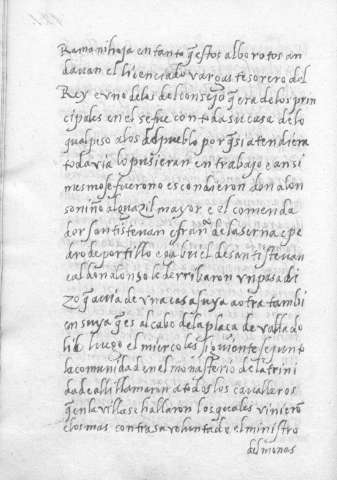 Rama ni hoja en tanto q̃ estos alborotos an
dauan el licenciado vargas tesorero del
Rey e vno de los del consejo q̃ era de los prin
cipales en el se fue con toda su casa de lo
qual peso a los del pueblo porq̃ si atendiera
todavia lo pusieran en trabajo e ansi
mesmo se fueron o escondieron don alon
so niño alguazil mayor e el comenda
dor santisteuan e frañ. de la serna e pe
dro de portillo e gabriel de santisteuan
e al don alonso le derribaron vn pasadi
zo q̃ auia de vna casa suya a otra tambi
en suya q̃ es al cabo de la plaça de vallado
lid luego el miercoles siguiente se junto
la comunidad en el monasterio de la trini
dad e alli llamaron a todos los caualleros
q̃ en la villa se hallaron los quales viniero
e los mas contra su voluntad e el ministro
del monas